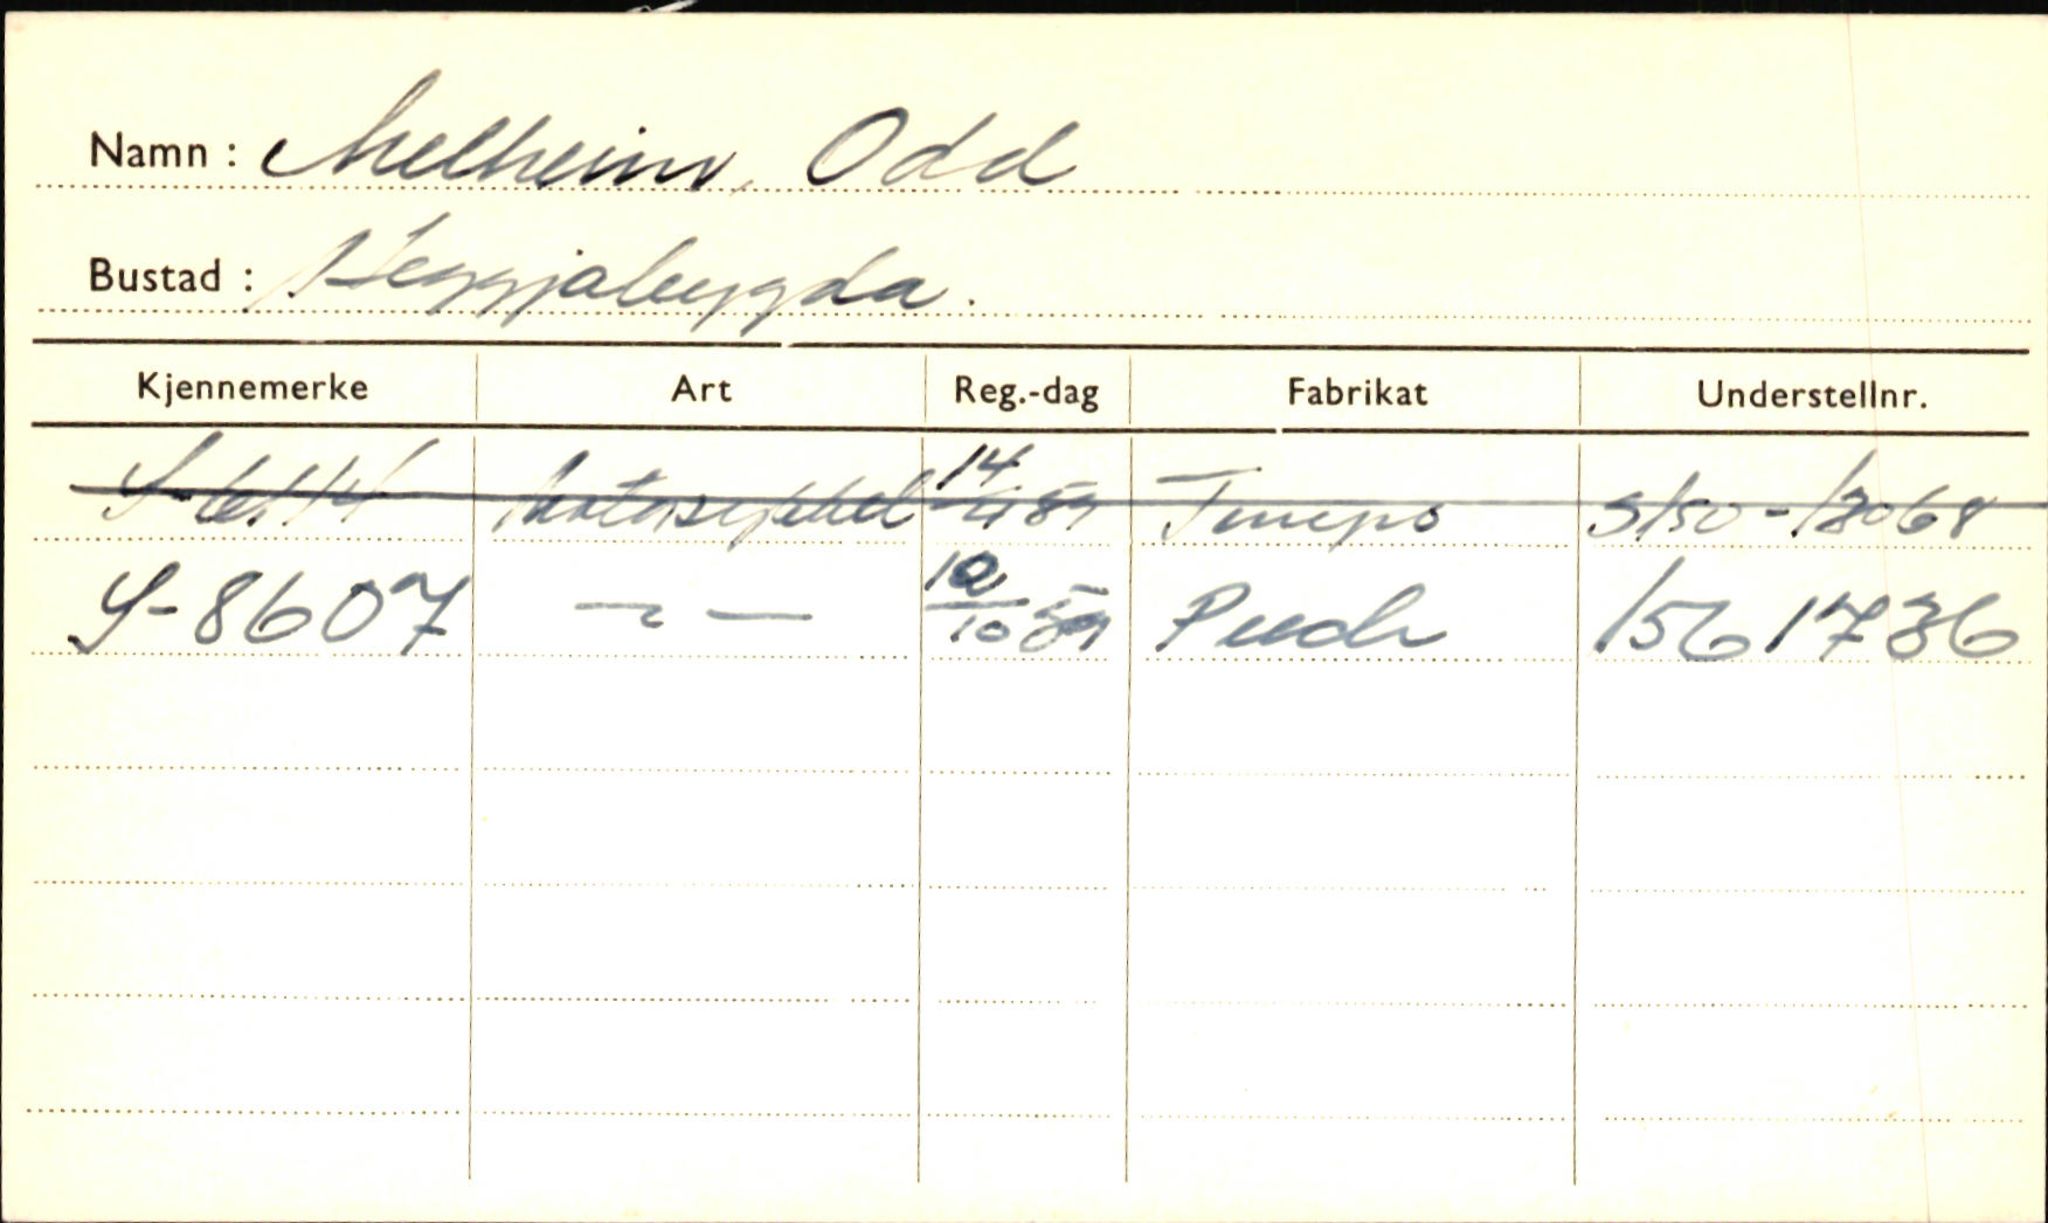 Namn : Melheim, Odd
Bustad : Heggjabygda.
Kjennemerke Art Reg.-dag Fabrikat Understellnr.
Motorsykkel 14/4 59 Tempo
S-8607 — " — 10/10 59 Puch 1561736